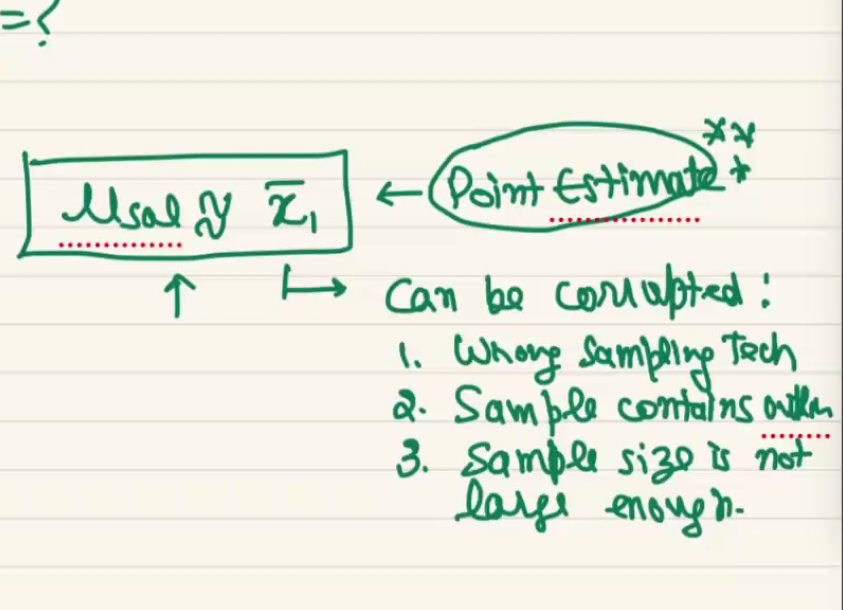 = ?
μsal ≈ x̄₁ ← Point Estimate ***
↑ ↳ Can be corrupted :
1. Wrong Sampling Tech
2. Sample contains outliers
3. Sample size is not
large enough.